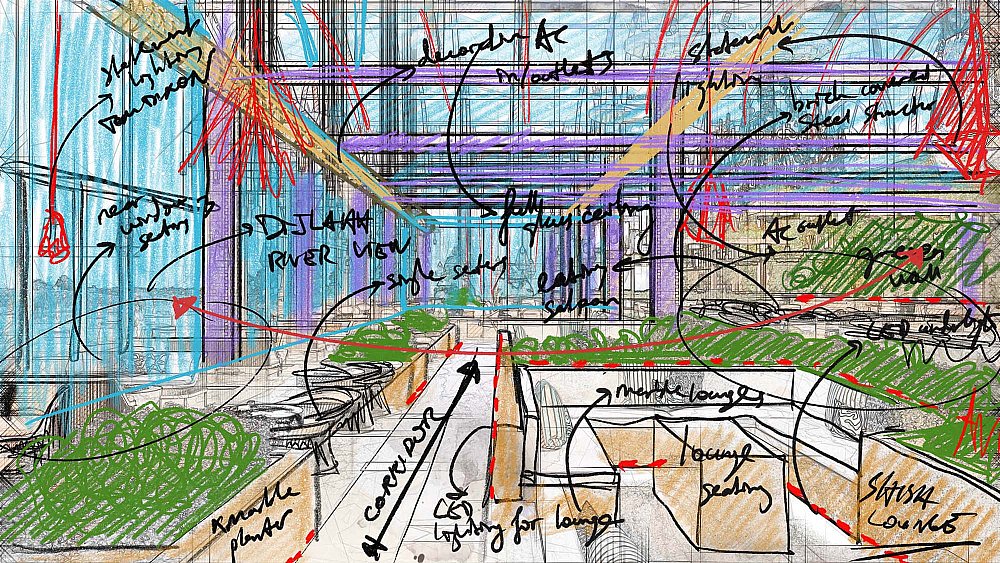 statement
lighting
decorative AC
in/outlets
statement
lighting
brick covered
steel structure
near
window
seating
DIJLAHH
RIVER VIEW
fully
glass ceiling
AC outlet
green
wall
single seating
eating
saloon
LED underlights
marble lounges
CORRIDOR
lounge
seating
marble
planter
LED
lighting for lounge
SHISH
LOUNGE